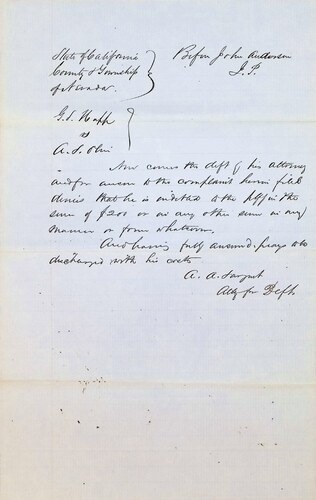 State of California } Before John Anderson
County & Township J. P.
of Nevada
G. S. Hupp
vs
A. S. Olin
Now comes the deft by his attorney
and for answer to the complaint herein filed
denies that he is indebted to the plff in the
sum of $200 or in any other sum in any
manner or form whatsoever.
And having fully answered prays to be
discharged with his costs
A. A. Sargent
Atty for Deft